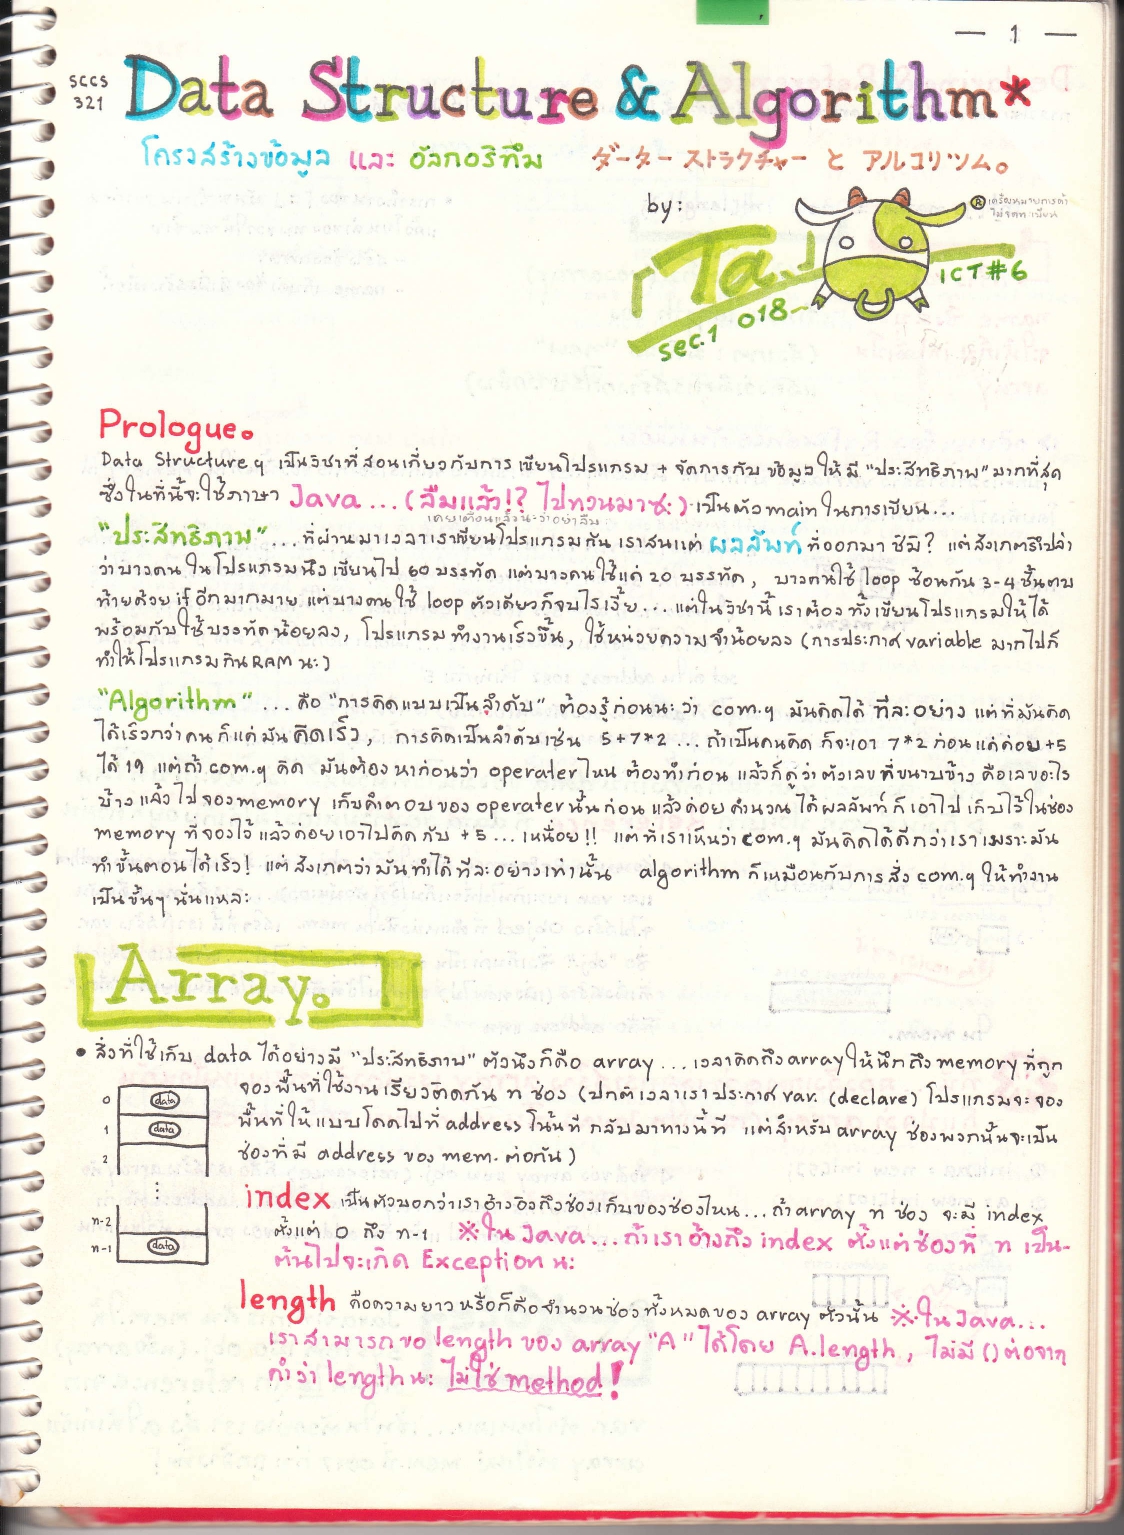 — 1 —
SCCS 321
Data Structure & Algorithm*
โครงสร้างข้อมูล และ อัลกอริทึม ダーター ストラクチャー と アルコリツム。
by:
® เครื่องหมายการค้า
ไม่จดทะเบียน
「Ta.」
ICT#6
sec.1 018~
Prologue。
Data Structure ๆ เป็นวิชาที่สอนเกี่ยวกับการ เขียนโปรแกรม + จัดการกับ ข้อมูล ให้ มี "ประสิทธิภาพ" มากที่สุด
ซึ่งในที่นี้จะใช้ภาษา Java ... (ลืมแล้ว!? ไปทวนมาซะ) เป็นตัว main ในการเขียน...
เคยเตือนแล้วนะว่าอย่าลืม
"ประสิทธิภาพ" ... ที่ผ่านมาเวลาเราเขียนโปรแกรมกัน เราสนแต่ ผลลัพท์ ที่ออกมา ชิมิ? แต่สังเกตรึเปล่า
ว่าบางคน ในโปรแกรมนึง เขียนไป 60 บรรทัด แต่บางคนใช้แค่ 20 บรรทัด, บางคนใช้ loop ซ้อนกัน 3-4 ชั้นตบ
ท้ายด้วย if อีกมากมาย แต่บางคน ใช้ loop ตัวเดียวก็จบไรเงี้ย... แต่ในวิชานี้ เราต้อง ทั้งเขียนโปรแกรมให้ได้
พร้อมกับใช้บรรทัดน้อยลง, โปรแกรมทำงานเร็วขึ้น, ใช้หน่วยความจำน้อยลง (การประกาศ variable มากไปก็
ทำให้โปรแกรมกิน RAM นะ)
"Algorithm" ... คือ "การคิดแบบเป็นลำดับ" ต้องรู้ก่อนนะ ว่า com.ๆ มันคิดได้ ทีละอย่าง แต่ที่มันคิด
ได้เร็วกว่าคน ก็แค่มัน คิดเร็ว, การคิดเป็นลำดับเช่น 5+7*2 ... ถ้าเป็นคนคิด ก็จะเอา 7*2 ก่อน แค่ค่อย +5
ได้ 19 แต่ถ้า com.ๆ คิด มันต้องหาก่อนว่า operater ไหน ต้องทำก่อน แล้วก็ดูว่าตัวเลขที่ขนาบข้าง คือเลขอะไร
บ้าง แล้วไปจอง memory เก็บคำตอบของ operater นั้นก่อน แล้วค่อยคำนวน ได้ผลลัพท์ ก็เอาไป เก็บไว้ในช่อง
memory ที่จองไว้ แล้วค่อยเอาไปคิด กับ +5 ... เหนื่อย!! แต่ที่เราเห็นว่า com.ๆ มันคิดได้ดีกว่าเรา เพราะมัน
ทำขั้นตอนได้เร็ว! แต่สังเกตว่ามันทำได้ทีละอย่างเท่านั้น algorithm ก็เหมือนกับการ สั่ง com.ๆ ให้ทำงาน
เป็นขั้นๆ นั่นแหละ
Array。
• สิ่งที่ใช้เก็บ data ได้อย่างมี "ประสิทธิภาพ" ตัวนึงก็คือ array... เวลาคิดถึง array ให้นึกถึง memory ที่ถูก
จองพื้นที่ใช้งาน เรียงติดกัน n ช่อง (ปกติ เวลาเราประกาศ var. (declare) โปรแกรมจะจอง
พื้นที่ให้ แบบโดดไปที่ address โน้นที กลับมาทางนี้ที แต่สำหรับ array ช่องพวกนั้นจะเป็น
ช่องที่มี address ของ mem. ต่อกัน)
0 data
1 data
2
⋮
n-2
n-1 data
index เป็นตัวบอกว่าเราอ้างอิงถึงช่องเก็บของช่องไหน... ถ้า array n ช่อง จะมี index
ตั้งแต่ 0 ถึง n-1 ※ใน Java... ถ้าเราอ้างถึง index ตั้งแต่ช่องที่ n เป็น-
ต้นไปจะเกิด Exception นะ
length คือความยาว หรือก็คือจำนวนช่องทั้งหมดของ array ตัวนั้น ※ใน Java...
เราสามารถขอ length ของ array "A" ได้โดย A.length, ไม่มี () ต่อจาก
คำว่า length นะ ไม่ใช่ method!